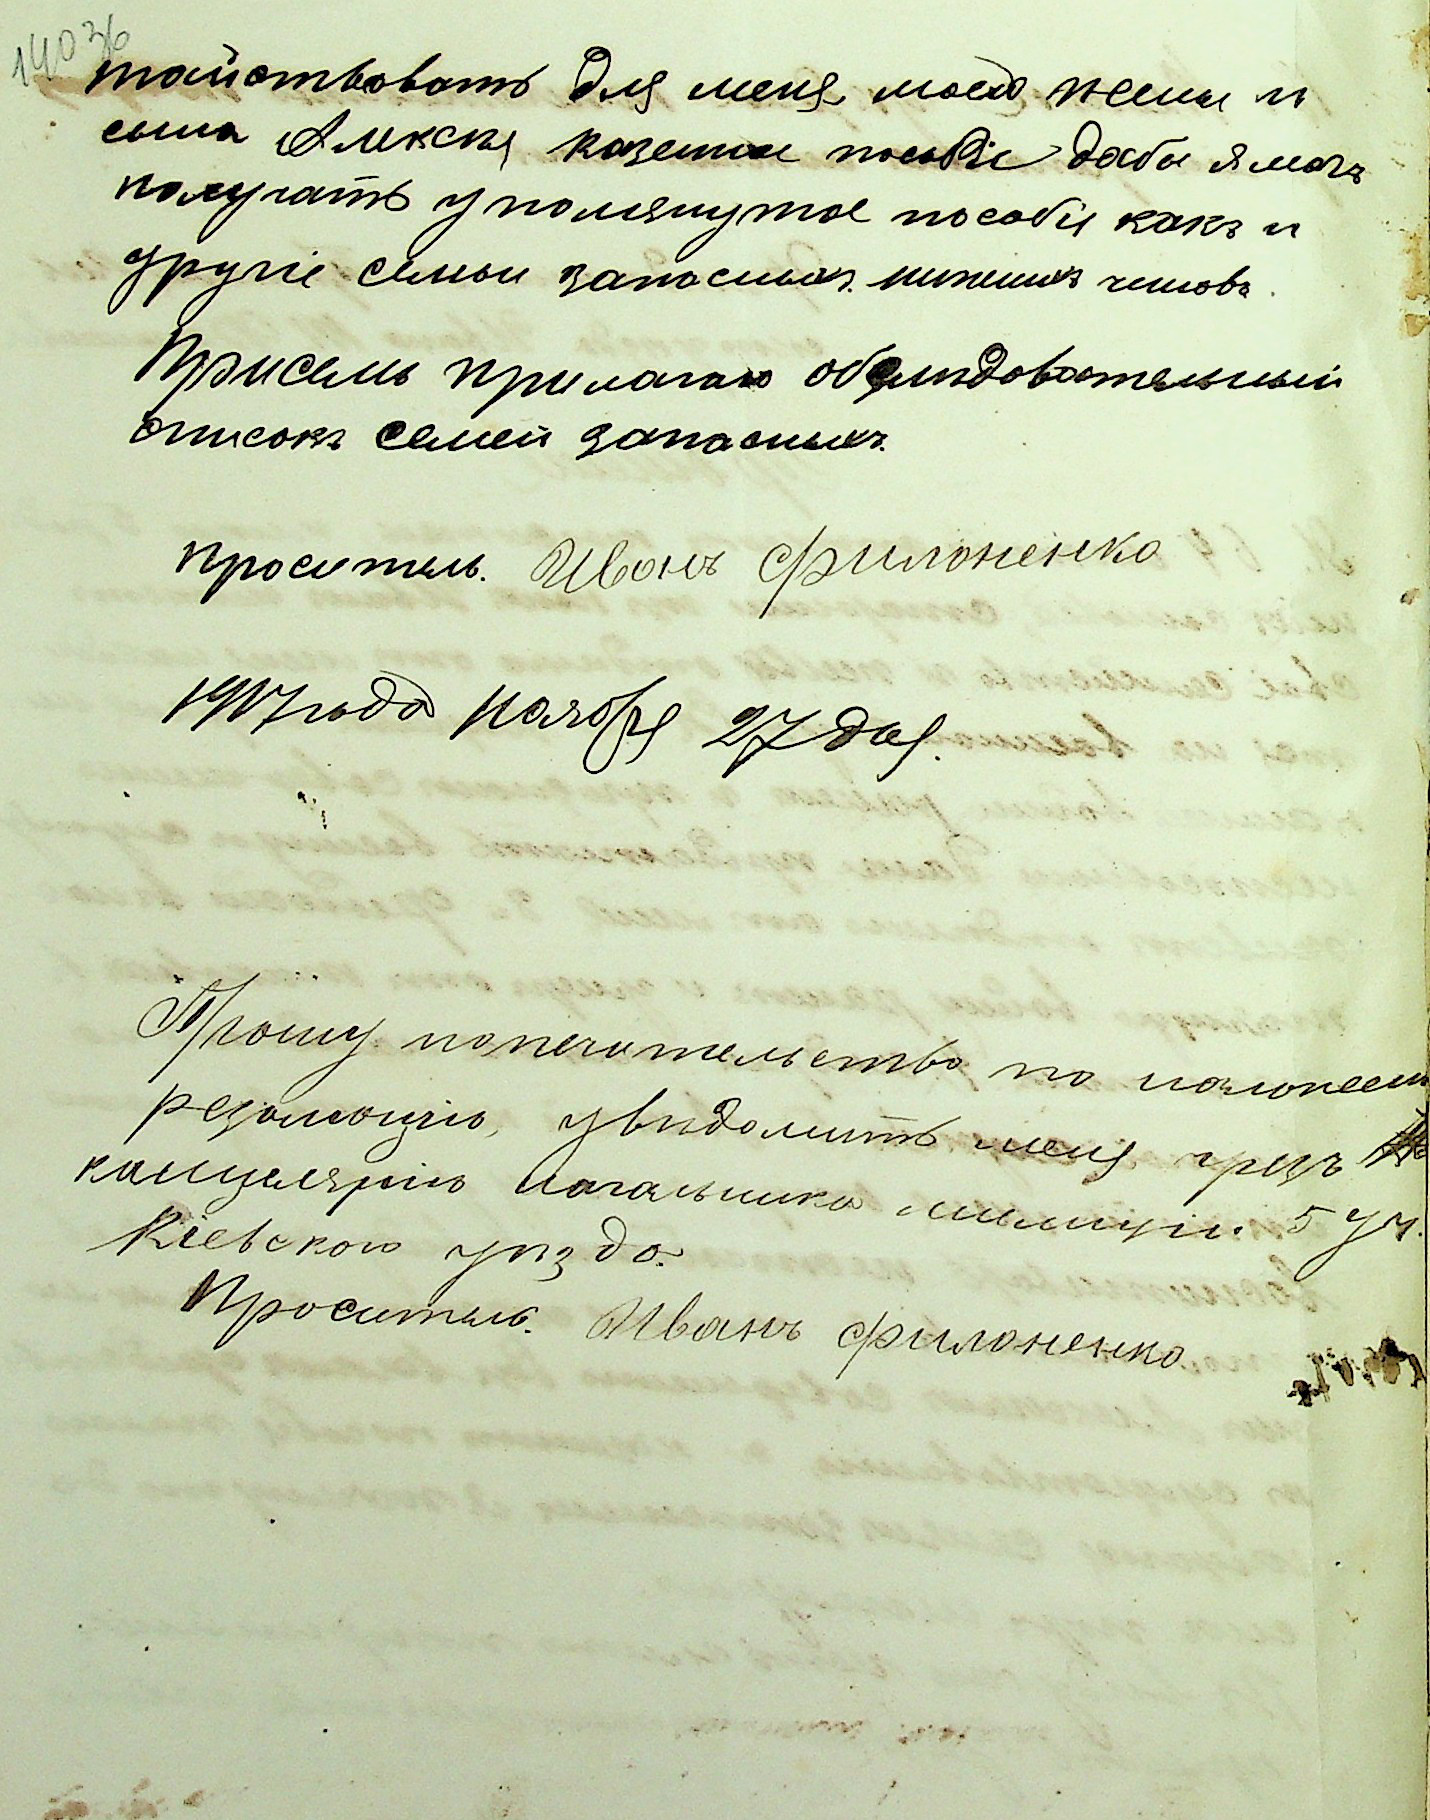 140 зв
тайствовать для меня моей жены и
сына Алексея казенное пособіе дабы я могъ
получать упомянутое пособіе какъ и
другіе семьи запасныхъ нижнихъ чиновъ.
Присемъ прилагаю обслѣдовательный
списокъ семей запасныхъ.
проситель. Иванъ Филоненко
1917 года Ноября 27 дня.
Прошу попечительство по наложеніи
резолюцію, увѣдомить меня чрезъ
канцелярію начальника милиціи 5 уч.
Кіевского уѣзда.
Проситель. Иванъ Филоненко